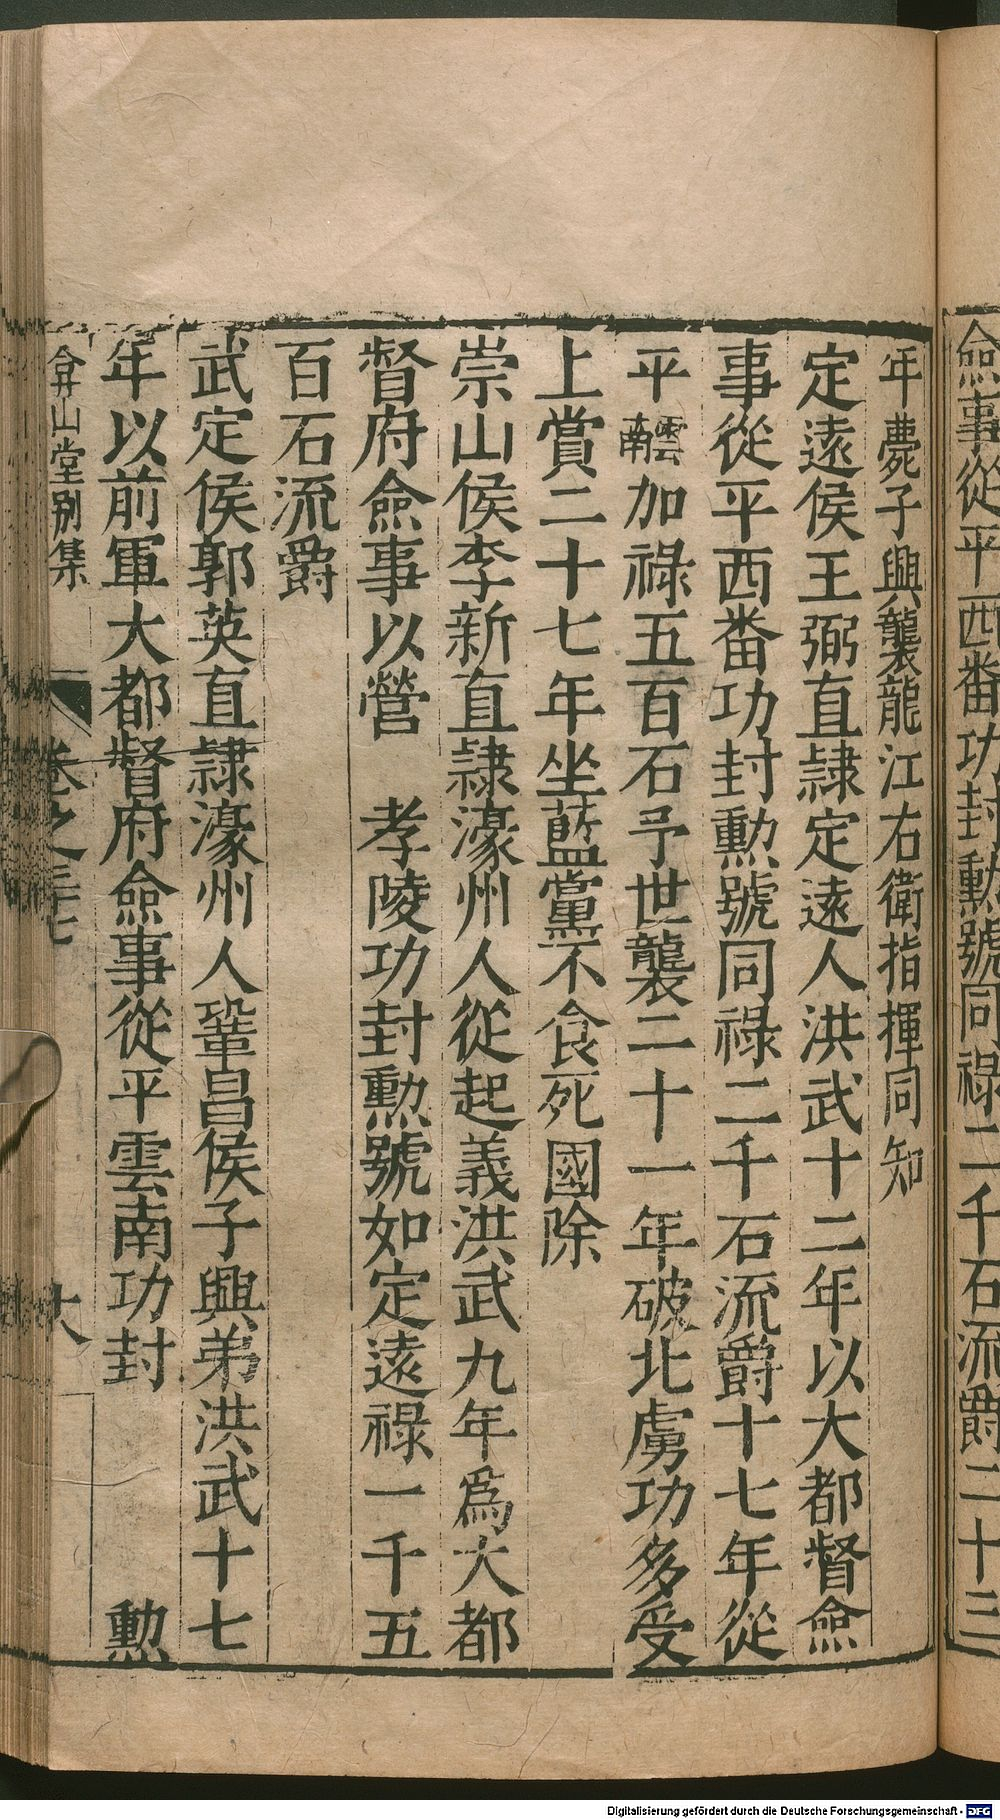 僉事從平西番功封勲號同祿二千石流爵二十三
年薨子興襲龍江右衛指揮同知
定遠侯王弼直隸定遠人洪武十二年以大都督僉
事從平西番功封勲號同祿二千石流爵十七年從
平雲南加祿五百石予世襲二十一年破北虜功多受
上賞二十七年坐藍黨不食死國除
崇山侯李新直隸濠州人從起義洪武九年為大都
督府僉事以營 孝陵功封勲號如定遠祿一千五
百石流爵
武定侯郭英直隸濠州人鞏昌侯子興弟洪武十七
年以前軍大都督府僉事從平雲南功封 勲
弇山堂別集 卷之三十七 十八
Digitalisierung gefördert durch die Deutsche Forschungsgemeinschaft - DFG